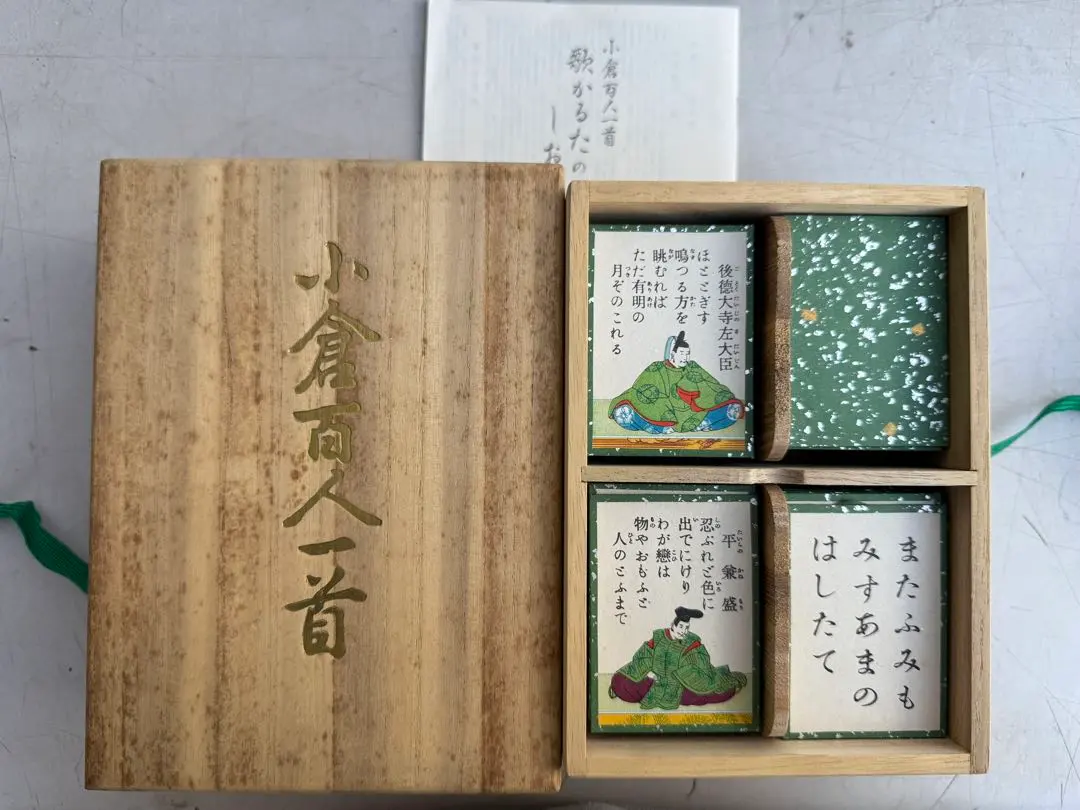 小倉百人一首
歌かるたの
しお
小倉百人一首
後徳大寺左大臣
ごとくだいじのさだいじん
ほととぎす
鳴つる方を
眺むれば
ただ有明の
月ぞのこれる
平兼盛
たいらのかねもり
忍ぶれど色に
出でにけり
わが戀は
物やおもふと
人のとふまで
またふみも
みすあまの
はしたて